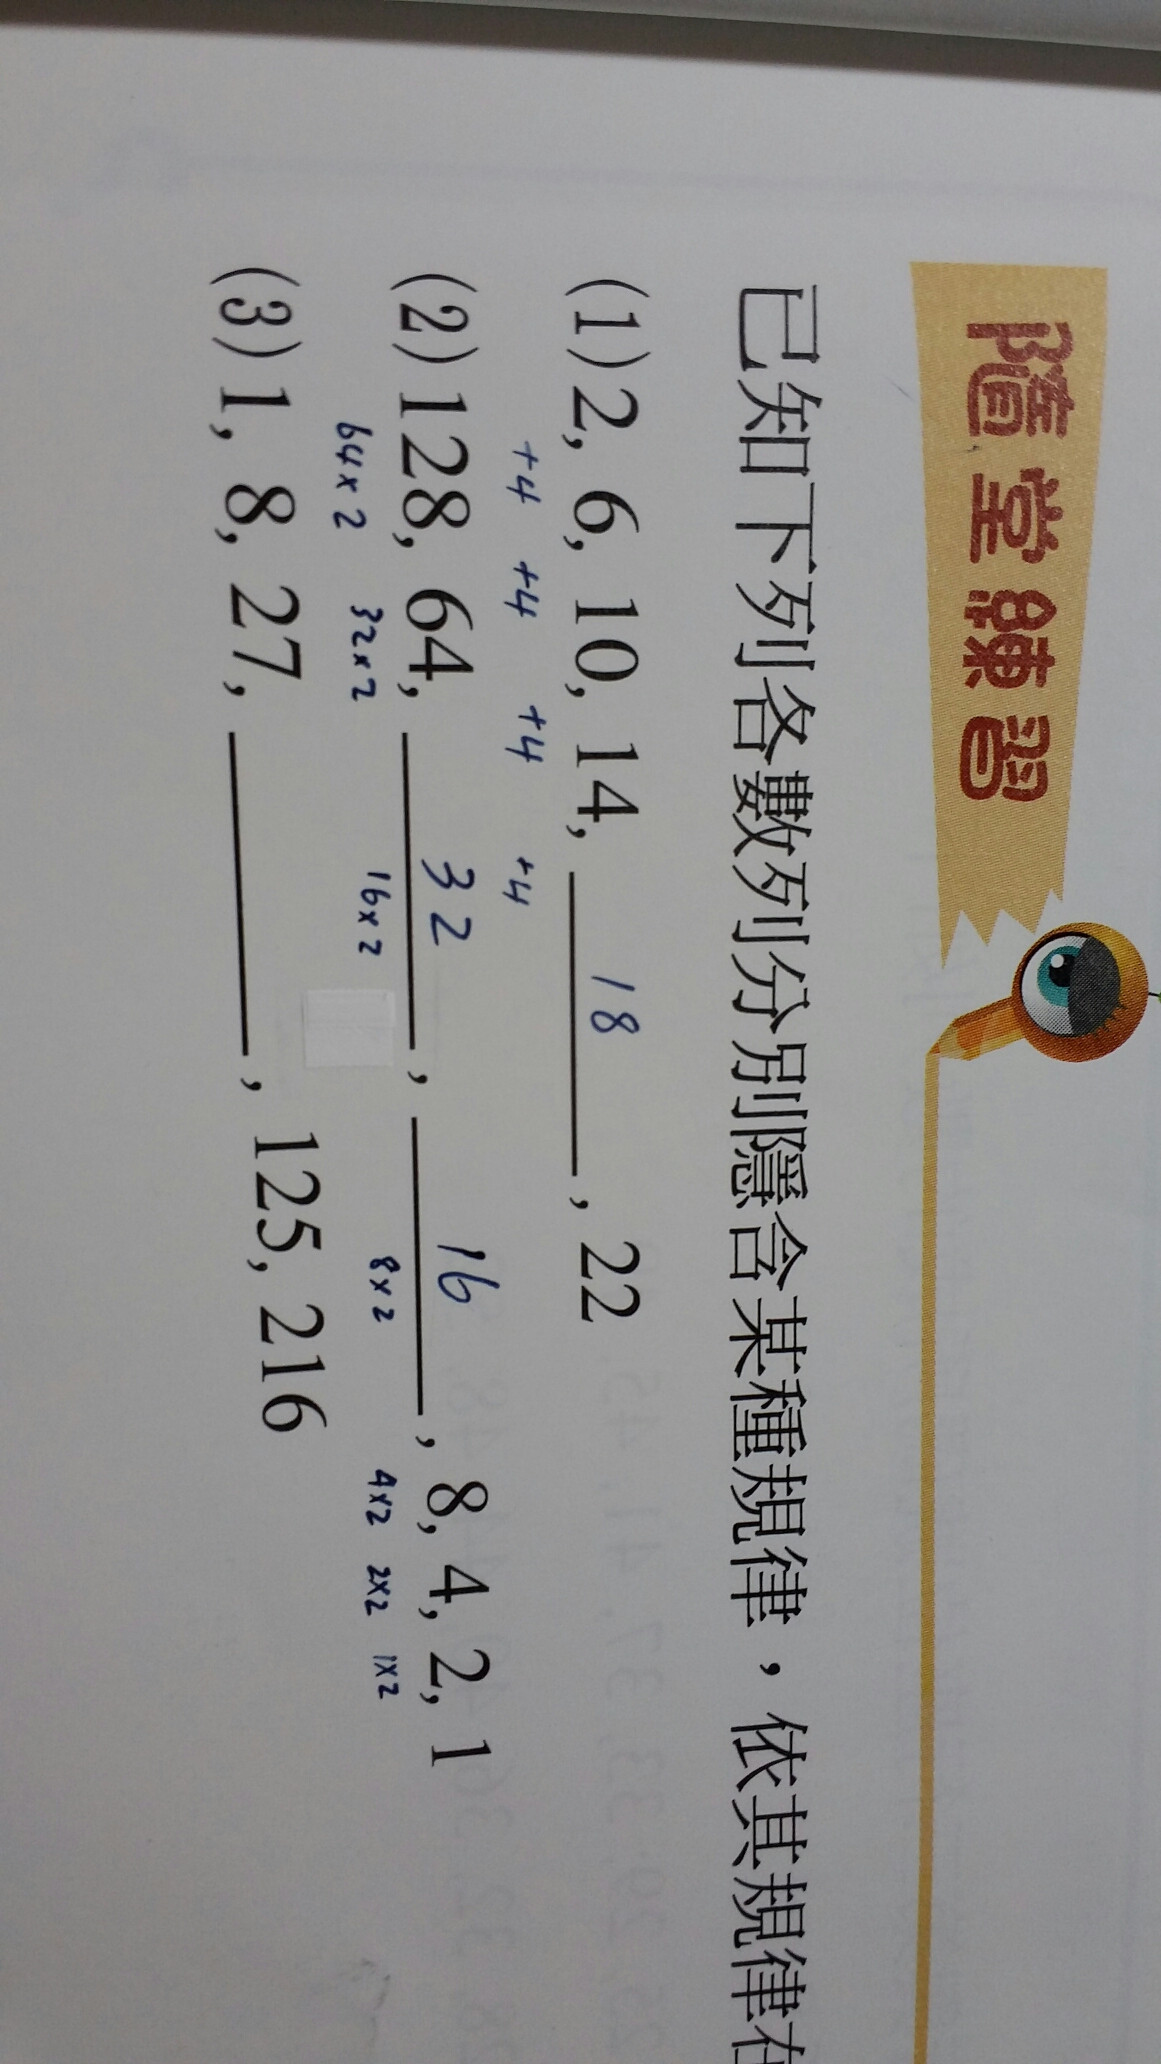 隨堂練習
已知下列各數列分別隱含某種規律，依其規律在
(1) 2, 6, 10, 14, 18, 22
+4 +4 +4 +4
(2) 128, 64, 32, 16, 8, 4, 2, 1
64×2 32×2 16×2 8×2 4×2 2×2 1×2
(3) 1, 8, 27, ______, 125, 216